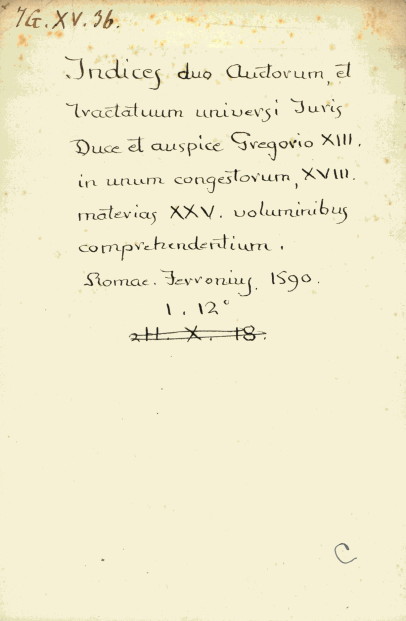 7G.XV.36.
Indices duo Auctorum, et
Tractatuum universi Juris
Duce et auspice Gregorio XIII.
in unum congestorum, XVIII.
materias XXV. voluminibus
comprehendentium.
Romae. Ferronius. 1590.
1. 12°
211. X. 18.
C